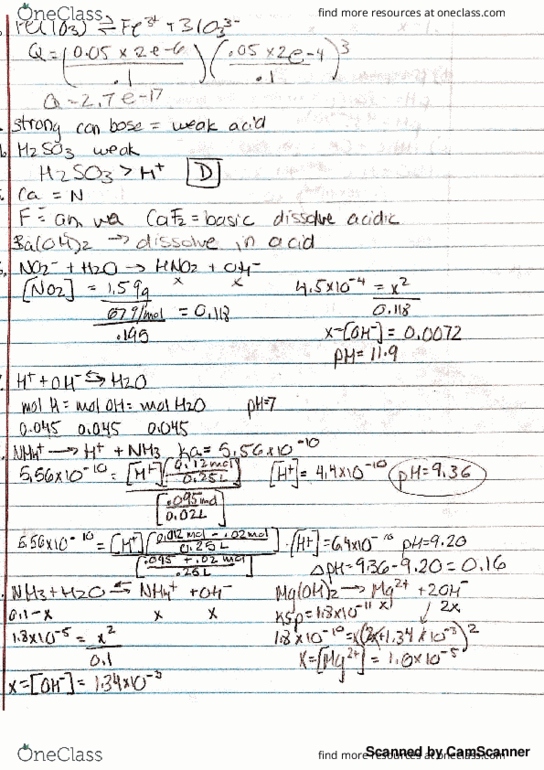 OneClass
find more resources at oneclass.com
Fe(IO3) ⇌ Fe3+ + 3IO3 3-
Q = (0.05 x 2e-6 / .1) (.05 x 2e-4 / .1)^3
Q = 2.7e-17
strong can base = weak acid
H2SO3 weak
H2SO3 > H+ D
Ca = N
F = an wa CaF2 = basic dissolve acidic
Ba(OH)2 → dissolve in acid
NO2- + H2O → HNO2 + OH-
x x
[NO2] = 1.59g / 67g/mol / .195 = 0.118
4.5x10-4 = x2 / 0.118
x=[OH-] = 0.0072
pH = 11.9
H+ + OH- ⇆ H2O
mol H = mol OH = mol H2O pH=7
0.045 0.045 0.045
NH4+ → H+ + NH3 ka = 5.56x10-10
5.56x10-10 = [H+][0.12mol / 0.25L] / [.095mol / 0.02L] [H+] = 4.4x10-10 pH=9.36
5.56x10-10 = [H+][0.012mol - .02mol / 0.25L] / [.095 + .02mol / .25L] [H+] = 6.4x10-10 pH=9.20
ΔpH = 9.36 - 9.20 = 0.16
NH3 + H2O ⇆ NH4+ + OH-
0.1-x x x
1.8x10-5 = x2 / 0.1
x=[OH-] = 1.34x10-3
Mg(OH)2 → Mg2+ + 2OH-
Ksp = 1.8x10-11 x 2x
1.8x10-10 = x(2x+1.34x10-3)2
x=[Mg2+] = 1.0x10-5
Scanned by CamScanner
OneClass
find more resources at oneclass.com